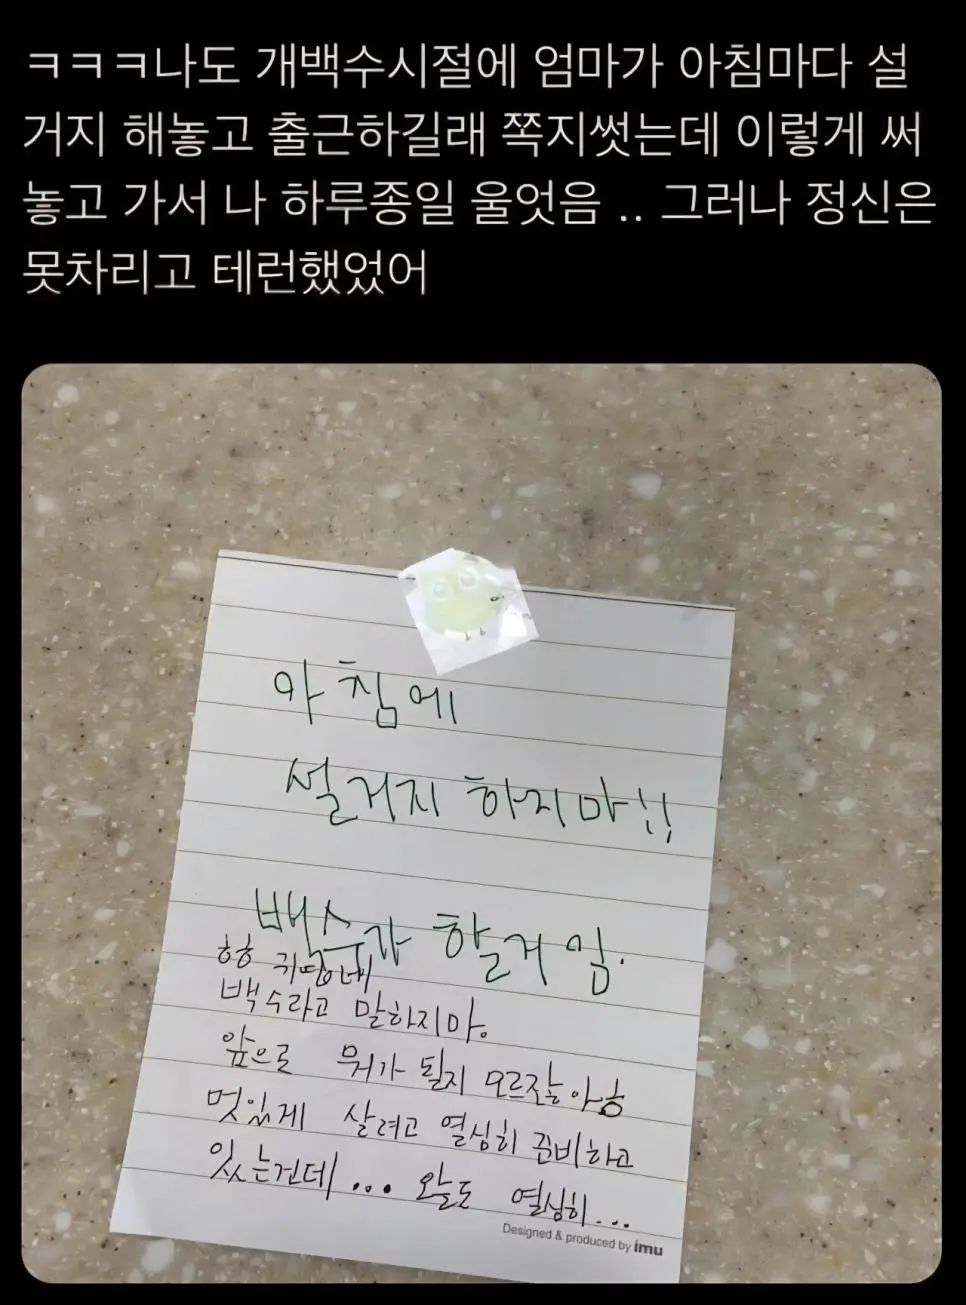 ㅋㅋㅋ나도 개백수시절에 엄마가 아침마다 설
거지 해놓고 출근하길래 쪽지썻는데 이렇게 써
놓고 가서 나 하루종일 울엇음 .. 그러나 정신은
못차리고 테런했었어
아침에
설거지 하지마!!
백수가 할거임.
흥흥 귀땡네
백수라고 말하지마.
앞으로 뭐가 될지 모르잖아ㅎ
멋있게 살려고 열심히 준비하고
있는건데... 오늘도 열심히...
Designed & produced by imu